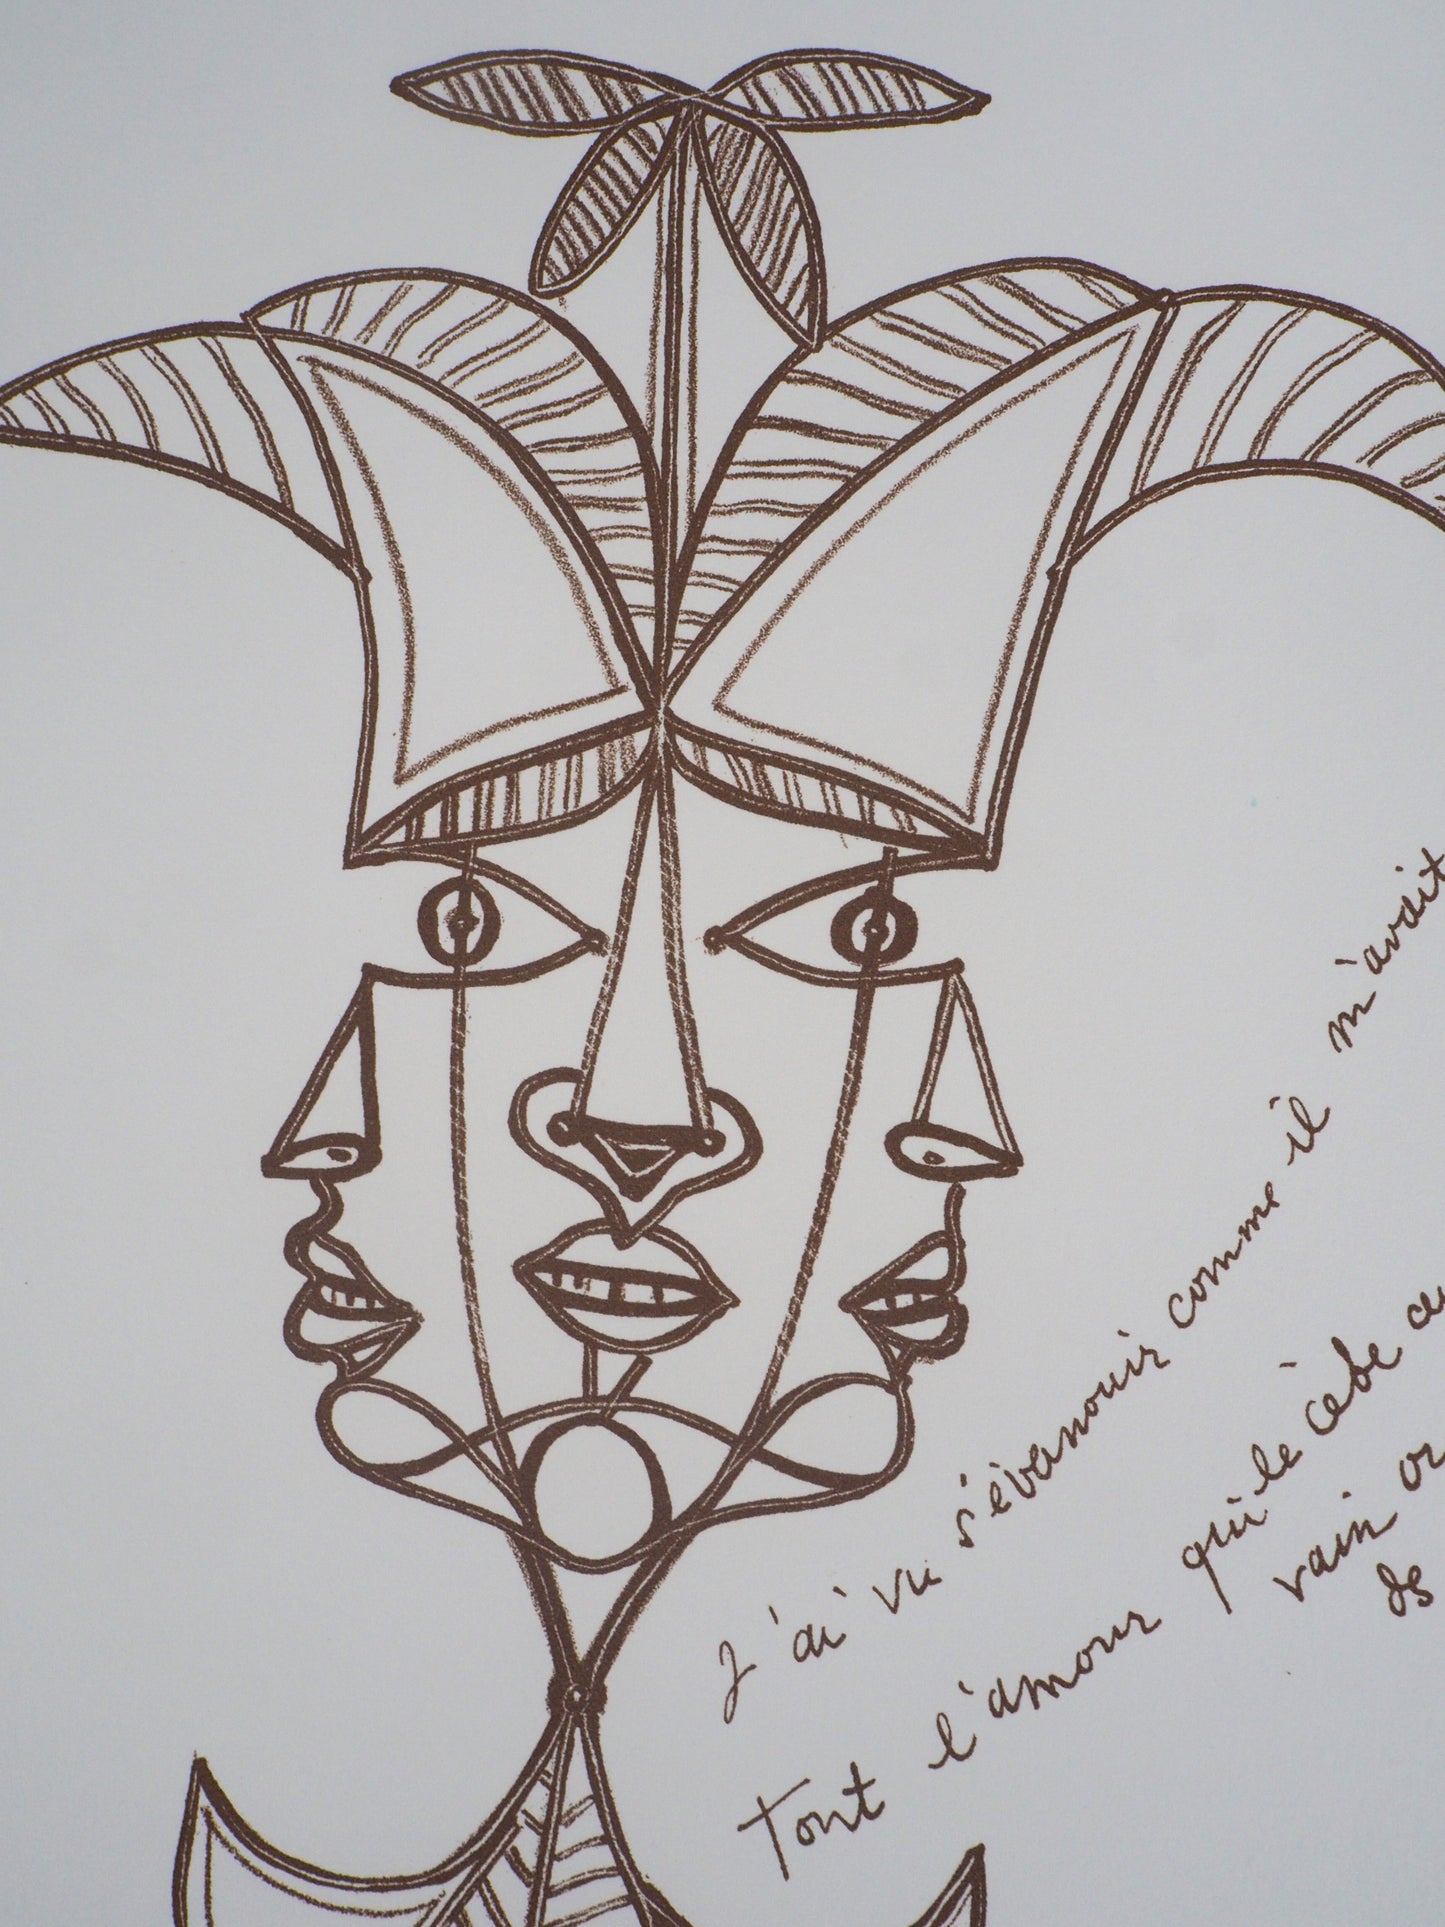 J'ai vu s'évanouir comme il m'avait
Tout l'amour qui le cèbe
vain or
de